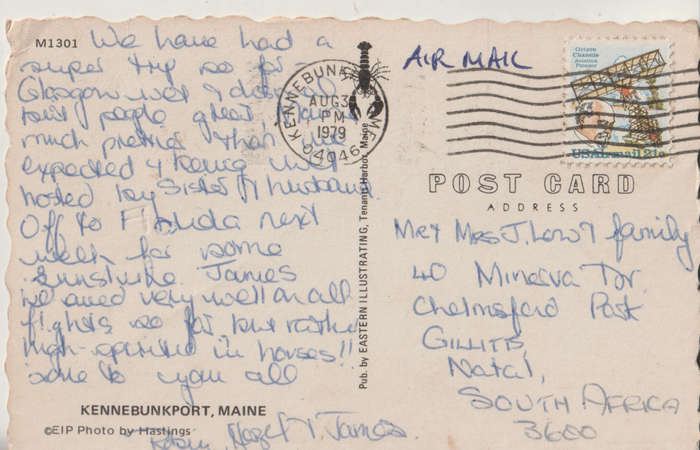 M1301
We have had a
super trip so far
Glasgow wet & dismal
but people great
much prettier than we
expected & being well
hosted by Sister & husband.
Off to Florida next
week for some
sunshine James
behaved very well on all
flights so far but rather
high-spirited in houses!!
love to you all
Robin, Hazel & James.
KENNEBUNKPORT, MAINE
©EIP Photo by Hastings
Pub. by EASTERN ILLUSTRATING, Tenants Harbor, Maine
KENNEBUNKPORT ME
AUG 3
PM
1979
04046
AIR MAIL
Octave
Chanute
Aviation
Pioneer
USAirmail 21c
POST CARD
ADDRESS
Mr & Mrs J. Low & family
40 Minerva Tor.
Chelmsford Park
GILLITTS,
Natal,
SOUTH AFRICA
3600